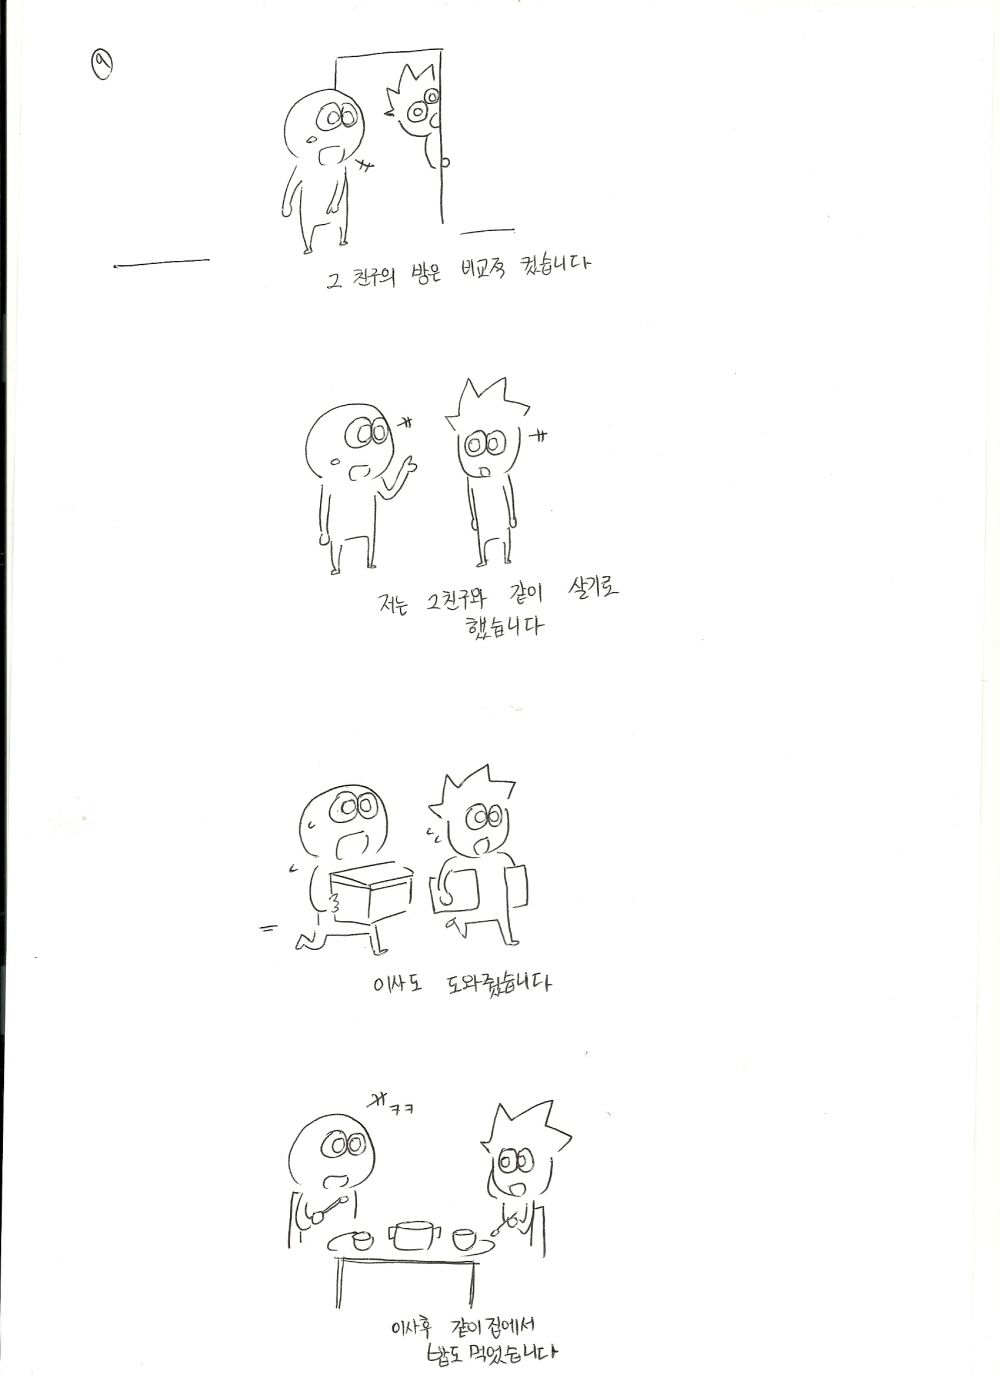 9
그 친구의 방은 비교적 컸습니다
저는 그친구와 같이 살기로
했습니다
이사도 도와줬습니다
ㅋㅋ
이사후 같이 집에서
밥도 먹었습니다